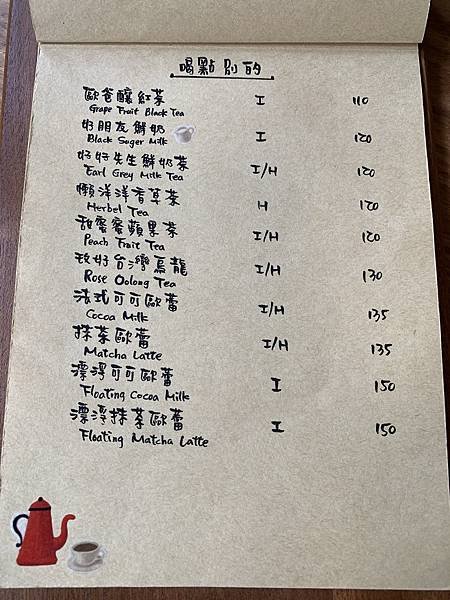 喝點別的
歐爸釀紅茶 I 110
Grape Fruit Black Tea
好朋友鮮奶 I 120
Black Suger Milk
好好先生鮮奶茶 I/H 120
Earl Grey Milk Tea
懶洋洋香草茶 H 120
Herbel Tea
甜蜜蜜蘋果茶 I/H 120
Peach Fruit Tea
玫好台灣烏龍 I/H 130
Rose Oolong Tea
法式可可歐蕾 I/H 135
Cocoa Milk
抹茶歐蕾 I/H 135
Matcha Latte
漂浮可可歐蕾 I 150
Floating Cocoa Milk
漂浮抹茶歐蕾 I 150
Floating Matcha Latte